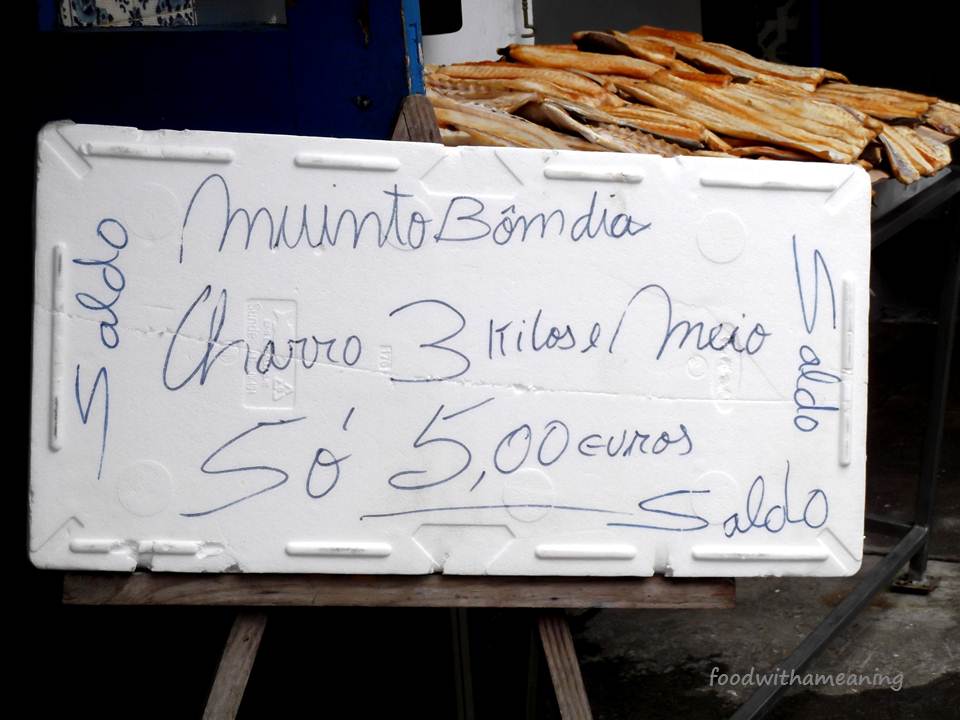 Muinto Bôm dia
Charro 3 Kilos e Meio
Só 5,00 euros
Saldo
Saldo
Saldo
foodwithameaning